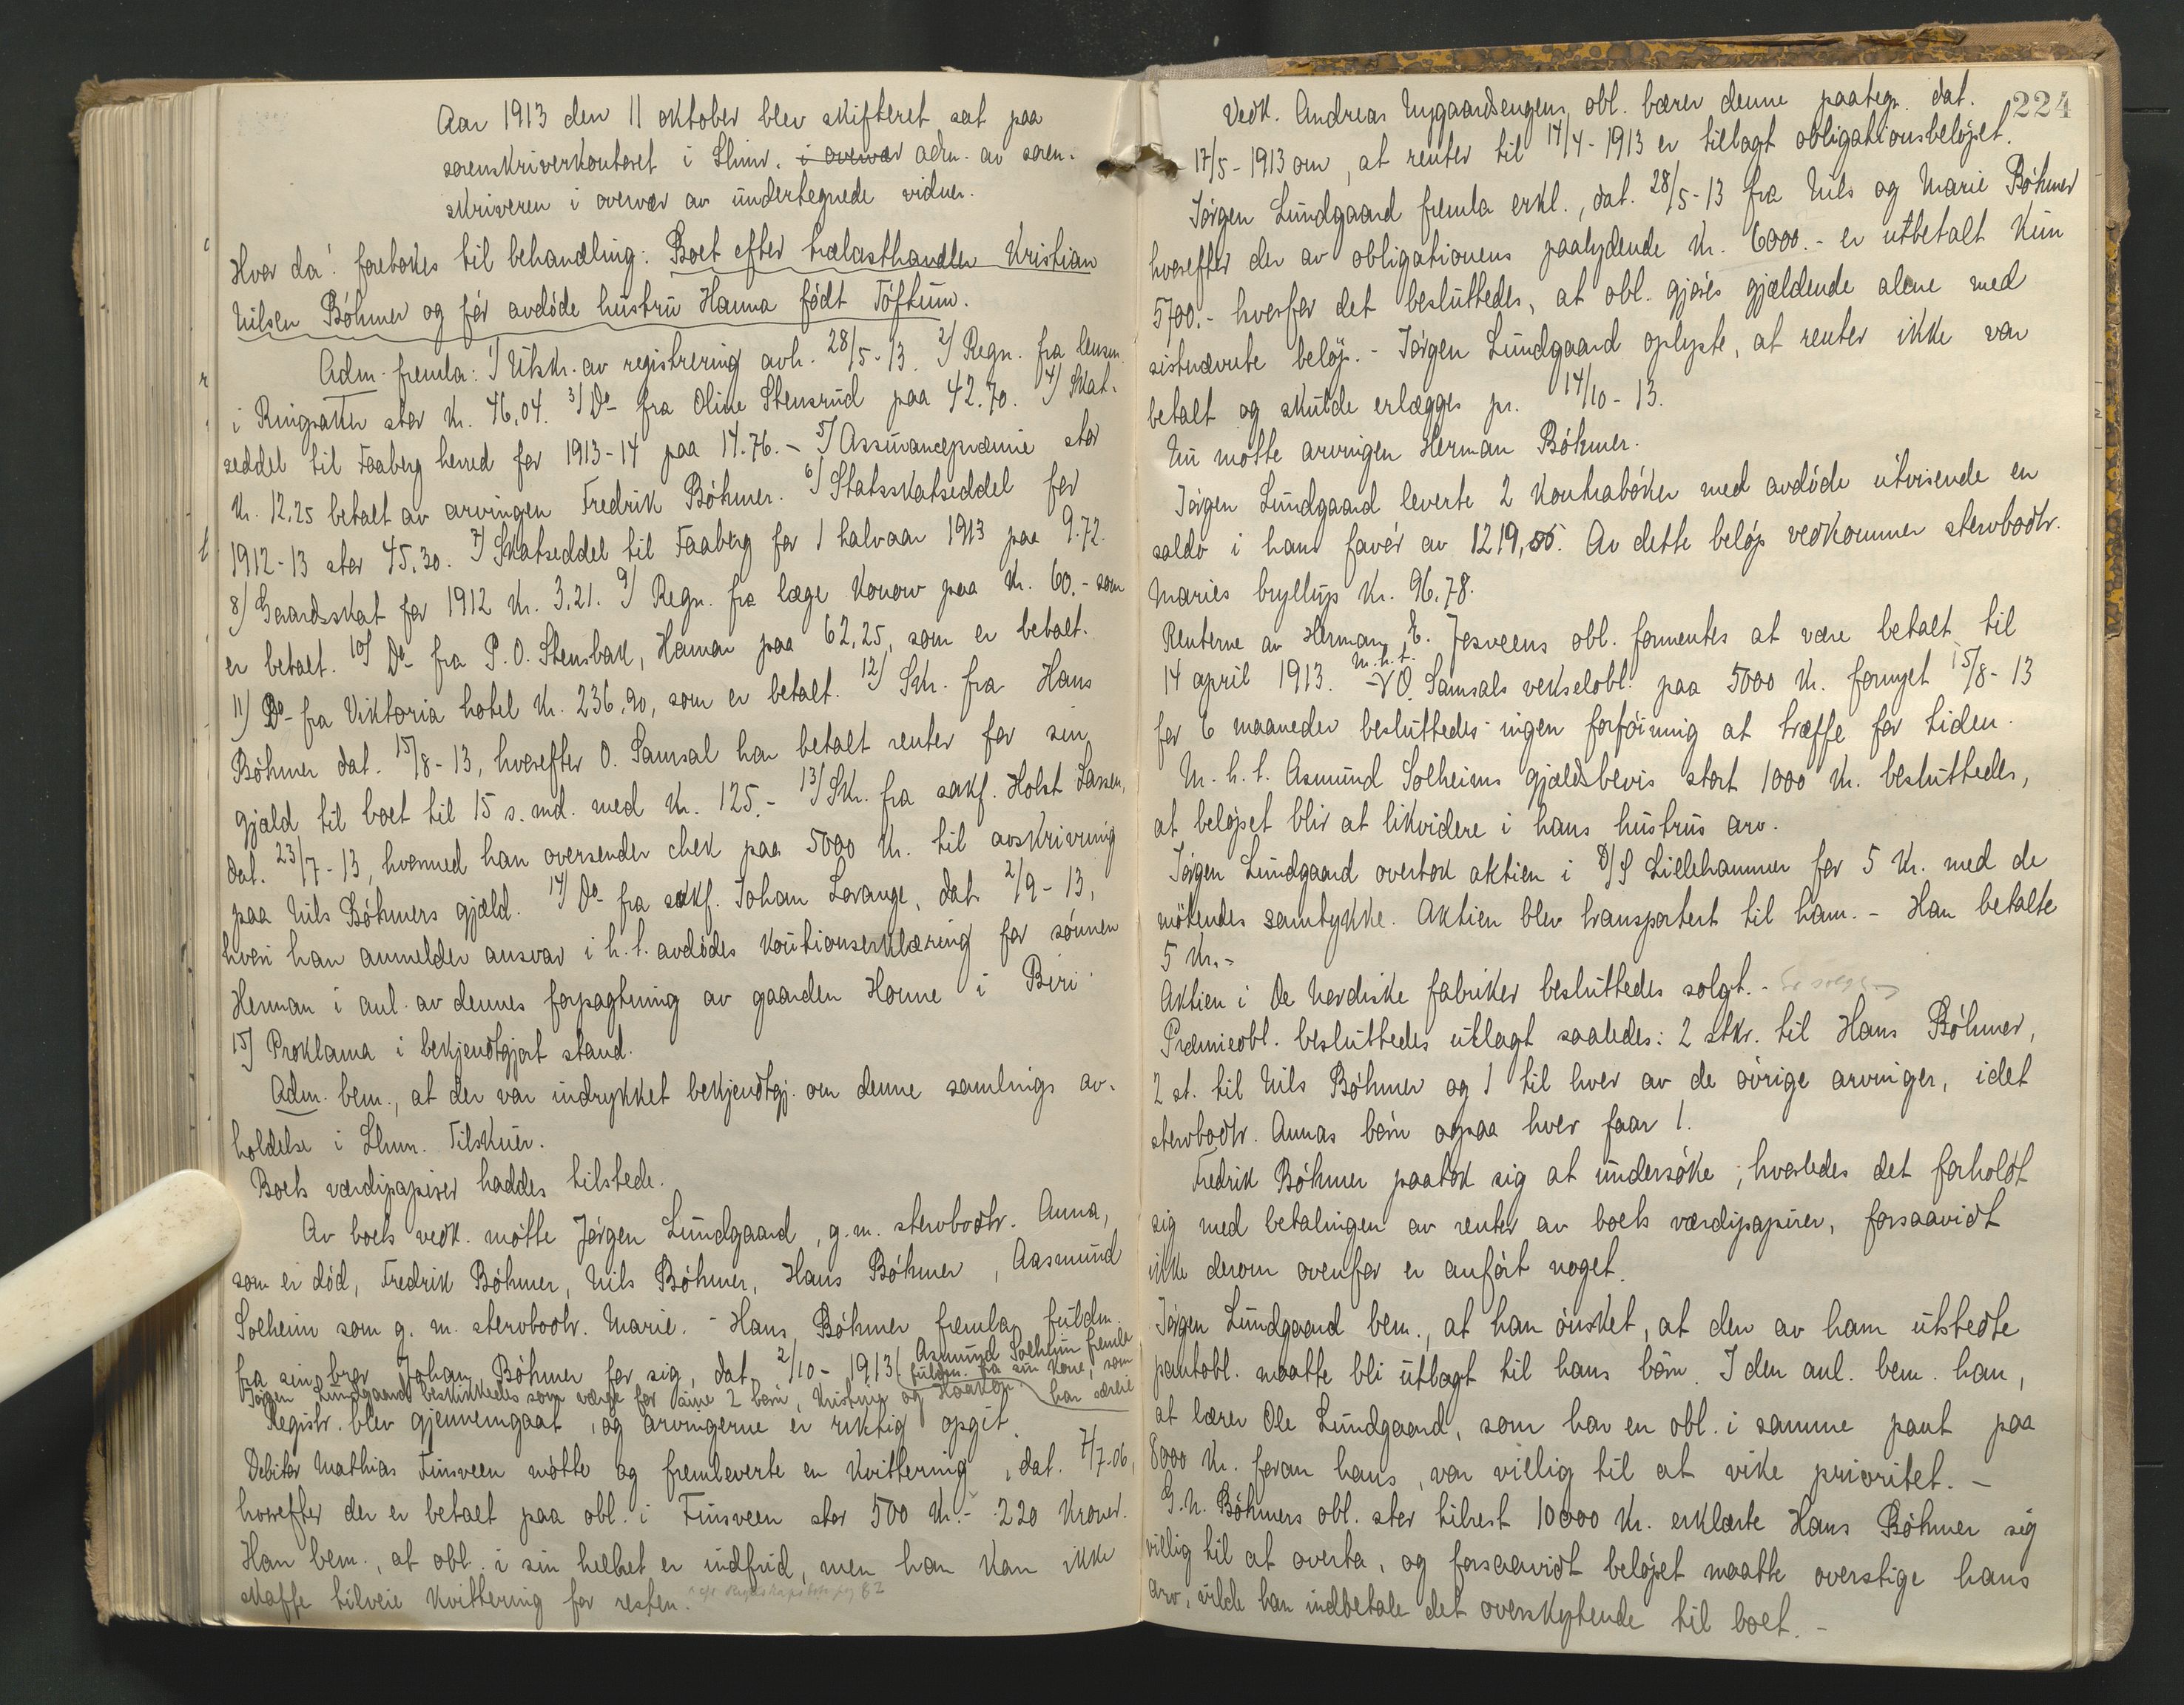 Aar 1913 den 11 oktober blev skifteret sat paa
sorenskriverkontoret i Lhmr. i overvær adm. av soren-
skriveren i overvær av undertegnede vidner.
Hvor da: foretokes til behandling: Boet efter trælasthandler Kristian
Nilsen Böhmer og før avdøde hustru Hanna født Toftum.
Adm. fremla: 1) Utskr. av registrering avh. 28/5-13. 2) Regn. fra lensm.
i Ringsaker stor kr. 46.04. 3) Do fra Oline Stensrud paa 42.70. 4) Skat-
seddel til Faaberg herred for 1913-14 paa 14.76. - 5) Assurancepræmie stor
kr. 12.25 betalt av arvingen Fredrik Böhmer. 6) Statsskatseddel for
1912-13 stor 45.30. 7) Skatseddel til Faaberg for 1 halvaar 1913 paa 9.72.
8) Gaardsskat for 1912 kr. 3.21. 9) Regn. fra læge Konow paa kr. 60.- som
er betalt. 10) Do fra P. O. Stensbak, Hamar paa 62,25, som er betalt.
11) Do fra Viktoria hotel kr. 236.90, som er betalt. 12) Skr. fra Hans
Böhmer dat. 15/8-13, hvorefter O. Samsal har betalt renter for sin
gjæld til boet til 15 s. md. med kr. 125.- 13) Skr. fra sakf. Holst Larsen,
dat. 23/7-13, hvormed han oversender chek paa 5000 kr. til avskrivning
paa Nils Böhmers gjæld. 14) Do fra sakf. Johan Lavange, dat 2/9-13,
hvori han anmelder ansvar i h. t. avdødes kautionserklæring for sønnen
Herman i anl. av dennes forpagtning av gaarden Honne i Biri
15) Proklama i bekjendtgjort stand.
Adm. bem., at der var indrykket bekjendtgj. om denne samlings av-
holdelse i Lhmr. Tilskuer.
Boets værdipapirer haddes tilstede.
Av boets vedk. møtte Jørgen Lundgaard, g. m. stervbodtr. Anna,
som er død, Fredrik Böhmer, Nils Böhmer, Hans Böhmer, Aasmund
Solheim som g. m. stervbodtr. Marie. - Hans Böhmer fremla fuldm.
fra sin bror Johan Böhmer for sig, dat 2/10-1913 ( Asmund Solheim fremla
fuldm. fra sin kone, som
har særeie
Jørgen Lundgaard beskikkedes som værge for sine 2 børn, Kristin og Haakon.
Registr. blev gjennemgaat, og arvingerne er riktig opgit.
Debitor Mathias Finsveen møtte og fremleverte en kvittering, dat. 7/7-06,
hvorefter der er betalt paa obl. i Finsveen stor 500 kr.- 220 kroner.
Han bem., at obl. i sin helhet er indfrid, men han kan ikke
skaffe tilveie kvittering for resten. cfr Regnskapsbok pg 82
224
Vedk. Andreas Nygaardsengens obl. bærer denne paategn. dat.
17/5-1913 om, at renter til 14/4-1913 er tillagt obligationsbeløpet.
Jørgen Lundgaard fremla erkl., dat. 28/5-13 fra Nils og Marie Böhmer
hvorefter der av obligationens paalydende kr. 6000.- er utbetalt kun
5700.- hvorfor det besluttedes, at obl. gjøres gjældende alene med
sistnævnte beløp. - Jørgen Lundgaard oplyste, at renter ikke var
betalt og skulde erlægges pr. 14/10-13.
Nu møtte arvingen Herman Böhmer.
Jørgen Lundgaard leverte 2 kontrabøker med avdøde utvisende en
saldo i hans favør av 1219,55. Av dette beløp vedkommer stervbodtr.
Maries bryllup kr. 96.78.
Renterne av Herman E. Jesveens obl. formentes at være betalt til
14 april 1913. - M. h. t. O. Samsals vekselobl. paa 5000 kr. fornyet 15/8-13
for 6 maaneder besluttedes ingen forføining at træffe for tiden.
M. h. t. Asmund Solheims gjældsbevis stort 1000 kr. besluttedes,
at beløpet blir at likvidere i hans hustrus arv.
Jørgen Lundgaard overtok aktien i D/S Lillehammer for 5 kr. med de
møtendes samtykke. Aktien blev transportert til ham. - Han betalte
5 kr. -
Aktien i De nordiske fabriker besluttedes solgt. -
Præmieobl. besluttedes utlagt saaledes: 2 stkr. til Hans Böhmer,
2 st. til Nils Böhmer og 1 til hver av de øvrige arvinger, idet
stervbodtr. Annas børn ogsaa hver faar 1.
Fredrik Böhmer paatok sig at undersøke, hvorledes det forholdt
sig med betalingen av renter av boets værdipapirer, forsaavidt
ikke derom ovenfor er anført noget.
Jørgen Lundgaard bem., at han ønsket, at den av ham utstedte
pantobl. maatte bli utlagt til hans børn. I den anl. bem. han,
at lærer Ole Lundgaard, som har en obl. i samme pant paa
8000 kr. foran hans, var villig til at vike prioritet. -
G. N. Böhmers obl. stor tilrest 10000 kr. erklærte Hans Böhmer sig
villig til at overta, og forsaavidt beløpet maatte overstige hans
arv, vilde han indbetale det overskytende til boet. -